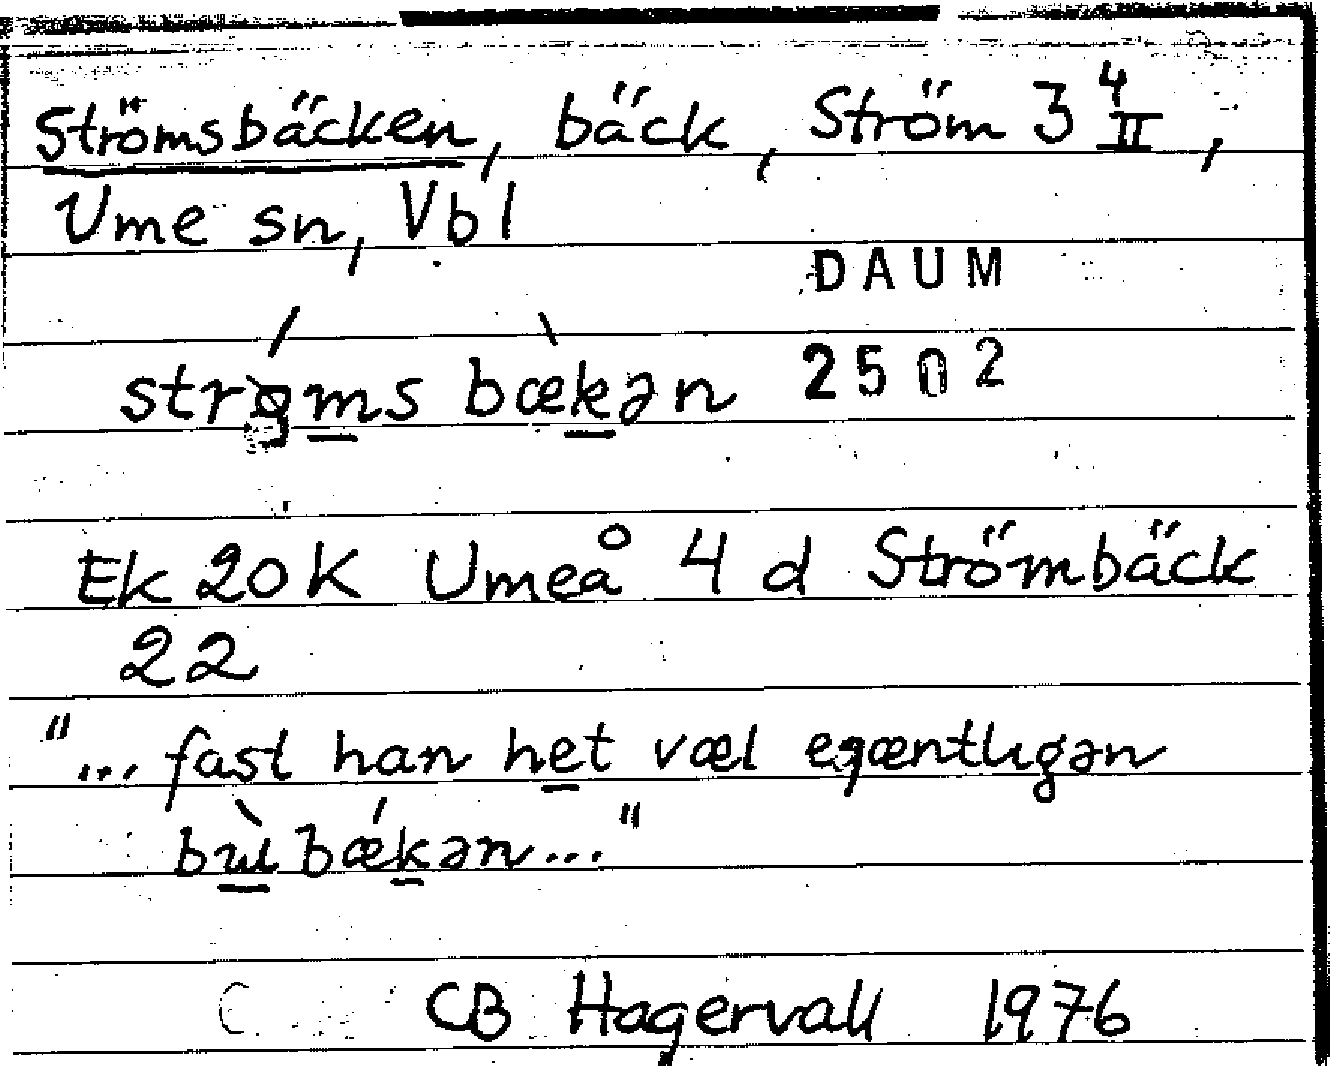 Strömsbäcken, bäck, Ström 3 4/II,
Ume sn, Vbl
DAUM
strøms bækən 2502
Ek 20K Umeå 4 d Strömbäck
22
"... fast han het væl egæntligən
bækən..."
CB Hagervall 1976